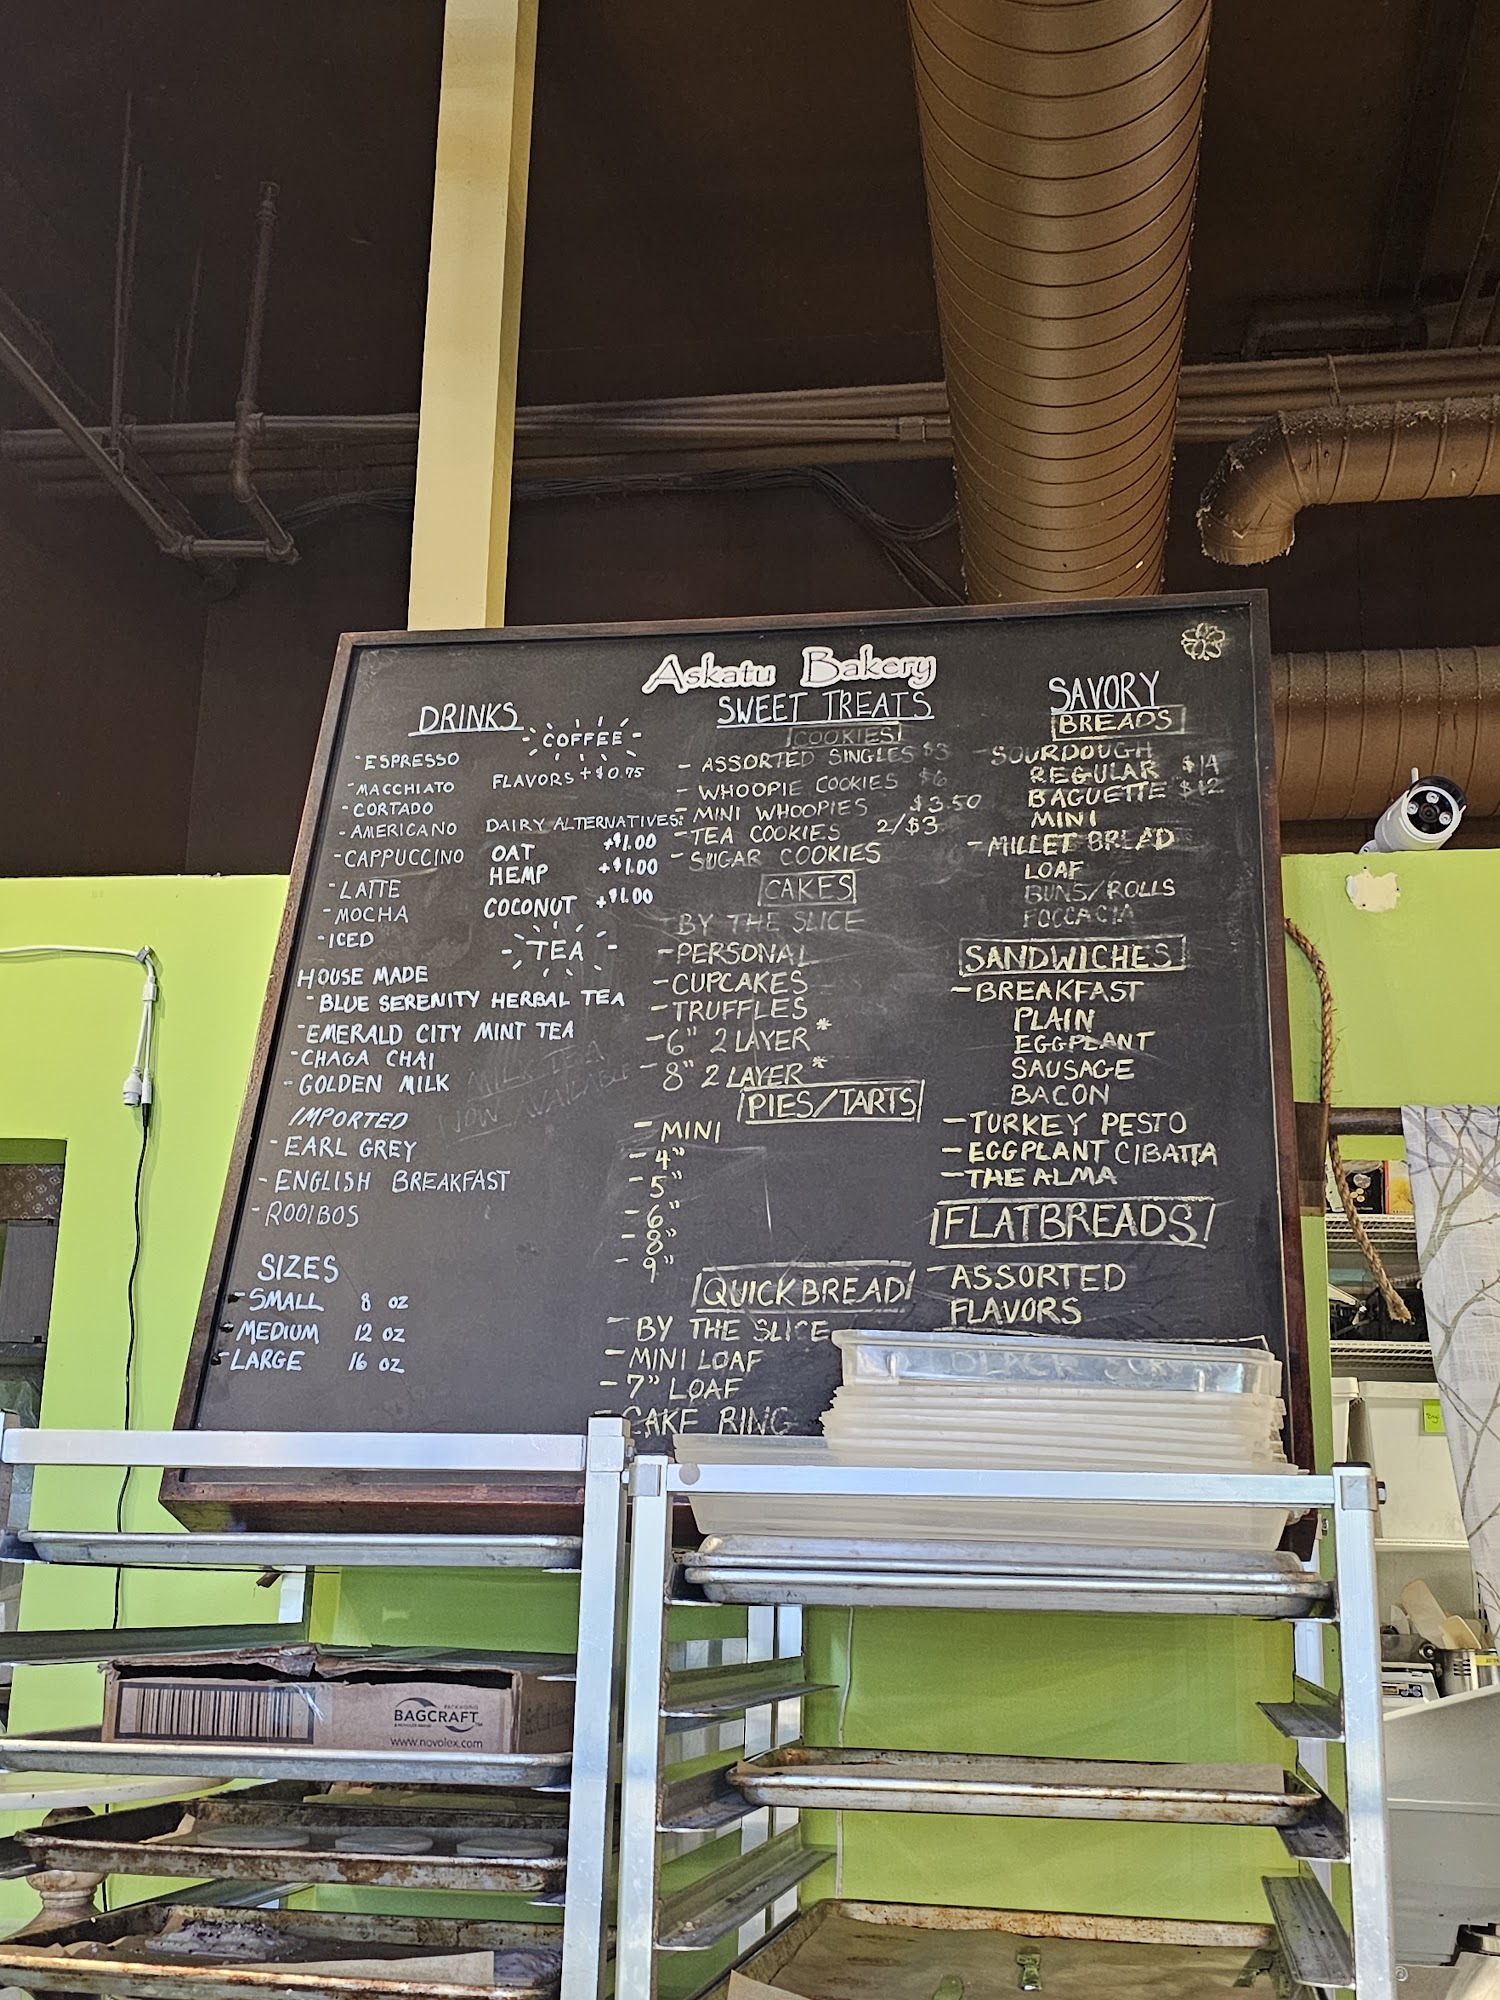 Askatu Bakery
DRINKS
COFFEE
- ESPRESSO
- MACCHIATO
- CORTADO
- AMERICANO
- CAPPUCCINO
- LATTE
- MOCHA
- ICED
FLAVORS + $0.75
DAIRY ALTERNATIVES:
OAT +$1.00
HEMP +$1.00
COCONUT +$1.00
TEA
HOUSE MADE
- BLUE SERENITY HERBAL TEA
- EMERALD CITY MINT TEA
- CHAGA CHAI
- GOLDEN MILK
MILK TEA
NOW AVAILABLE
IMPORTED
- EARL GREY
- ENGLISH BREAKFAST
- ROOIBOS
SIZES
- SMALL 8 OZ
- MEDIUM 12 OZ
- LARGE 16 OZ
SWEET TREATS
COOKIES
- ASSORTED SINGLES $3
- WHOOPIE COOKIES $6
- MINI WHOOPIES $3.50
- TEA COOKIES 2/$3
- SUGAR COOKIES
CAKES
- BY THE SLICE
- PERSONAL
- CUPCAKES
- TRUFFLES
- 6" 2 LAYER *
- 8" 2 LAYER *
PIES/TARTS
- MINI
- 4"
- 5"
- 6"
- 8"
- 9"
QUICKBREAD
- BY THE SLICE
- MINI LOAF
- 7" LOAF
- CAKE RING
SAVORY
BREADS
- SOURDOUGH
REGULAR $14
BAGUETTE $12
MINI
- MILLET BREAD
LOAF
BUNS/ROLLS
FOCCACIA
SANDWICHES
- BREAKFAST
PLAIN
EGGPLANT
SAUSAGE
BACON
- TURKEY PESTO
- EGGPLANT CIBATTA
- THE ALMA
FLATBREADS
- ASSORTED
FLAVORS
PACKAGING
BAGCRAFT™
www.novolex.com